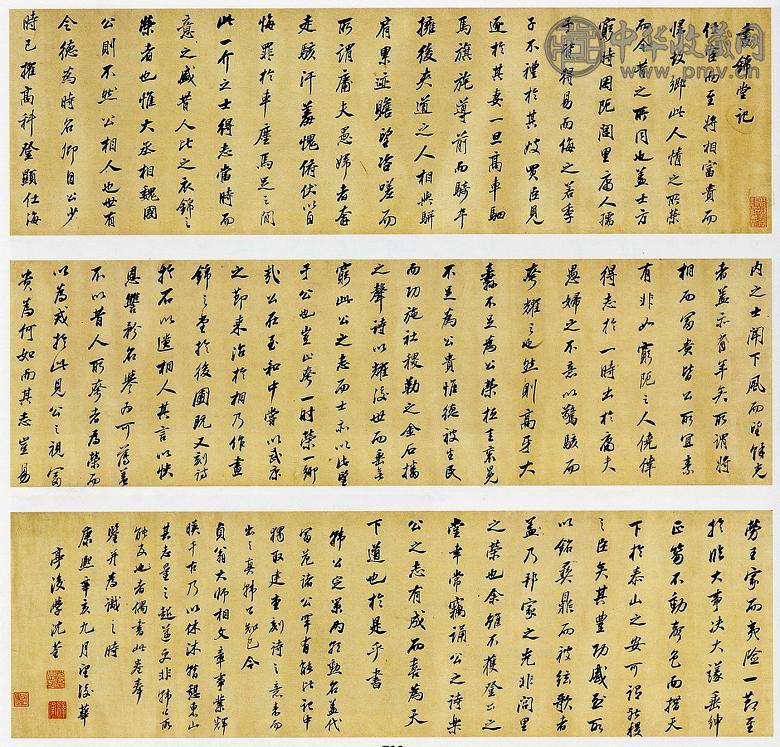 晝錦堂記
仕宦而至將相富貴而
歸故鄉此人情之所榮
而今昔之所同也蓋士方
窮時困阨閭里庸人孺
子皆得易而侮之若季
子不禮於其嫂買臣見
逐於其妻一旦高車駟
馬旗旄導前而騎卒
擁後夾道之人相與駢
肩累跡瞻望咨嗟而
所謂庸夫愚婦者奔
走駭汗羞愧俯伏以自
悔罪於車塵馬足之間
此一介之士得志當時而
意之盛昔人比之衣錦之
榮者也惟大丞相魏國
公則不然公相人也世有
令德為時名卿自公少
時已擢高科登顯仕海
內之士聞下風而望餘光
者蓋亦有年矣所謂將
相而富貴皆公所宜素
有非如窮阨之人僥倖
得志於一時出於庸夫
愚婦之不意以驚駭而
夸耀之也然則高牙大
纛不足為公榮桓圭袞冕
不足為公貴惟德被生民
而功施社稷勒之金石播
之聲詩以耀後世而垂無
窮此公之志而士亦以此望
于公也豈止夸一時榮一鄉
哉公在至和中嘗以武康
之節來治於相乃作晝
錦之堂於後圃既又刻詩
於石以遺相人其言以快
恩讐矜名譽為可薄蓋
不以昔人所夸者為榮而
以為戒於此見公之視富
貴為何如而其志豈易
勞王家而夷險一節至
於臨大事決大議垂紳
正笏不動聲色而措天
下於泰山之安可謂社稷
之臣矣其豐功盛烈所
以銘彝鼎而被絃歌者
益乃邦家之光非閭里
之榮也余雖不獲登公之
堂幸常竊誦公之詩樂
公之志有成而喜為天
下道也於是乎書
韓公定策兩朝勳名蓋代
富范諸公罕有能比記中
獨取建堂刻詩之意表而
出之真韓公知己今
貞翁大師相文章事業輝
暎千古乃以休沐暫憩東山
其志量之超文非韓公所
能及也者偶書此卷奉
鑒并為識之時
康熙辛亥九月望後華
亭後學沈荃
中华收藏网
www.pmv.cn